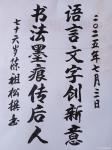 二〇二五年七月三日
语言文字创新意
书法墨痕传后人
七十六岁保祖松撰书